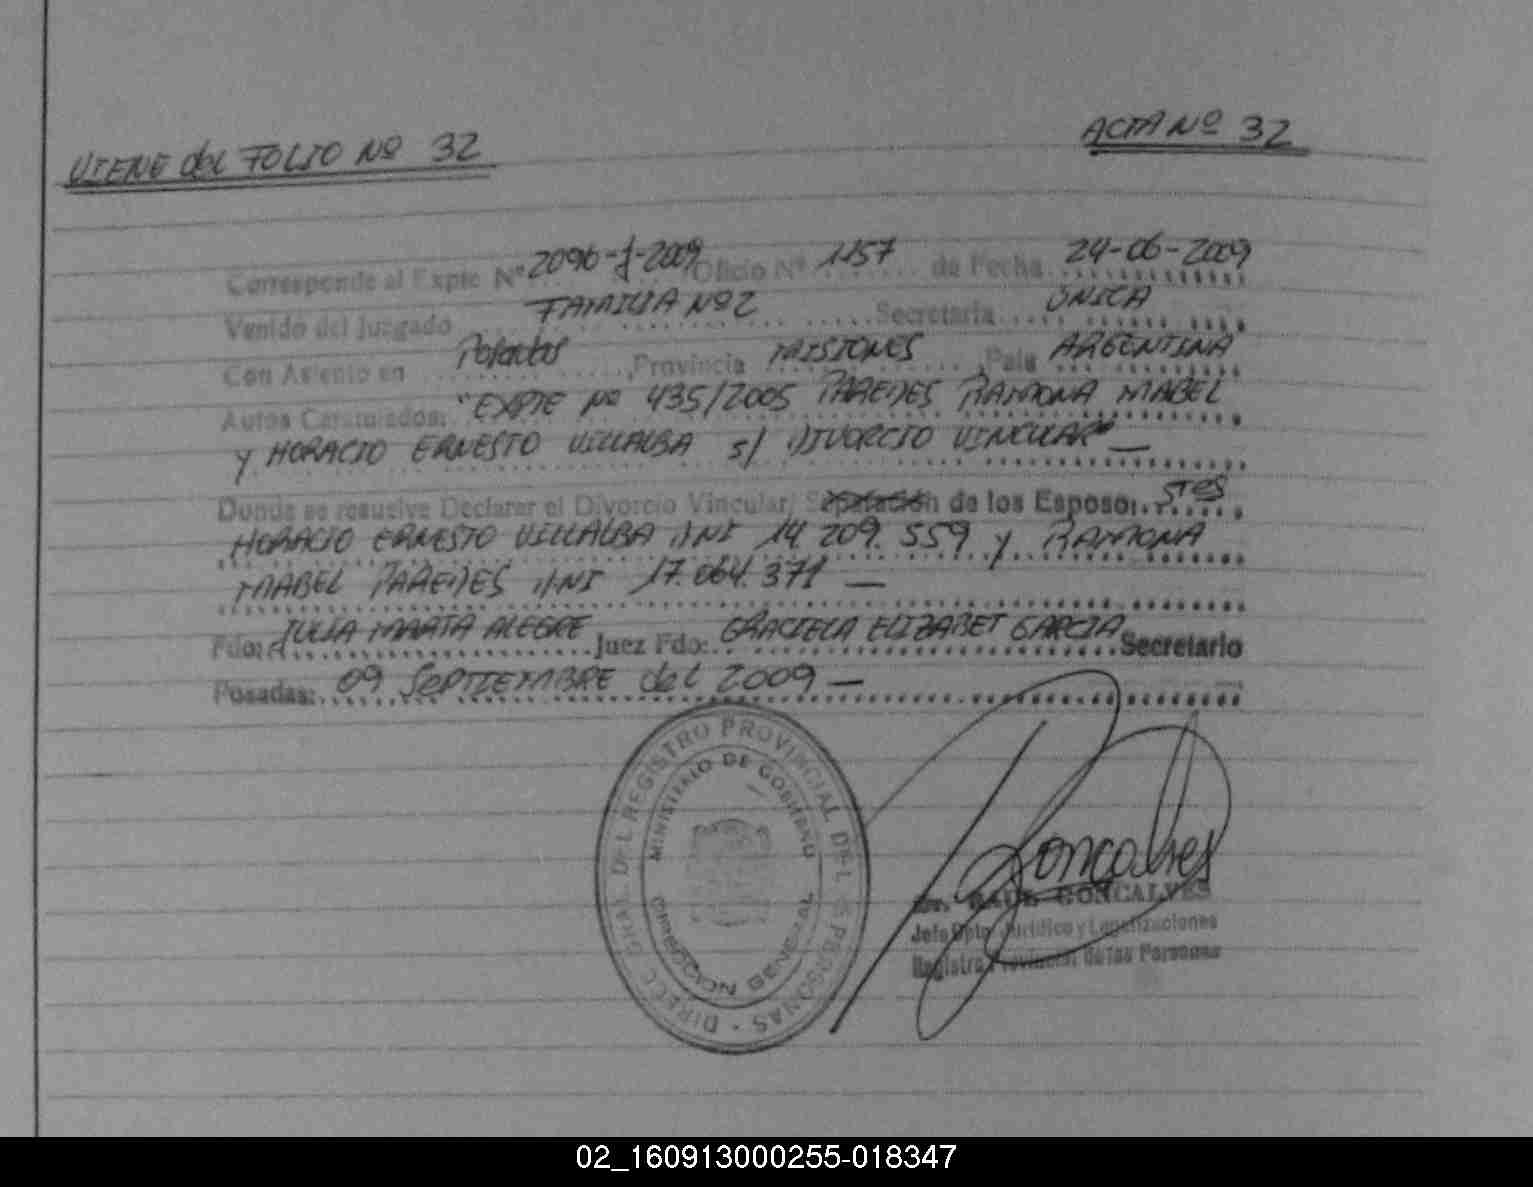 VIENE del FOLIO Nº 32
ACTA Nº 32
Corresponde al Expte Nº 2096-J-2009 Oficio Nº 1157 de Fecha 24-06-2009
Venido del Juzgado FAMILIA Nº 2 Secretaria UNICA
Con Asiento en Posadas, Provincia MISIONES, Pais ARGENTINA
Autos Caratulados: "EXPTE Nº 435/2005 PAREDES RAMONA MABEL
y HORACIO ERNESTO VILLALBA s/ DIVORCIO VINCULAR" —
Donde se resuelve Declarar el Divorcio Vincular/ Separación de los Esposo: Stes
HORACIO ERNESTO VILLALBA DNI 14.209.559 y RAMONA
MABEL PAREDES DNI 17.064.371 —
Fdo: JULIA MARTA ALEGRE Juez Fdo: GRACIELA ELIZABET GARCIA Secretario
Posadas: 09 SEPTIEMBRE del 2009 —
DIRECC. GRAL. DEL REGISTRO PROVINCIAL DE LAS PERSONAS
MINISTERIO DE GOBIERNO
DIRECCION GENERAL
Goncalves
Dr. RAUL GONCALVES
Jefe Dpto. Jurídico y Legalizaciones
Registro Provincial de las Personas
02_160913000255-018347